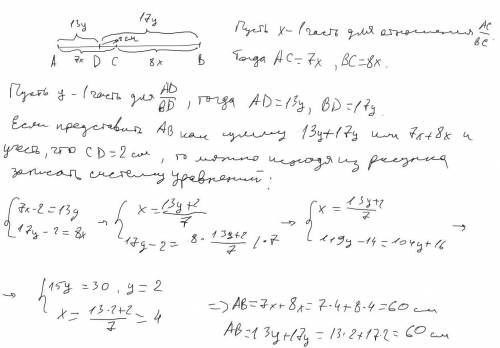 13y 17y
2см
A 7x D C 8x B
Пусть x - 1 часть для отношения AC/BC.
Тогда AC = 7x, BC = 8x.
Пусть y - 1 часть для AD/BD, тогда AD = 13y, BD = 17y.
Если представить AB как сумму 13y+17y или 7x+8x и
учесть, что CD = 2 см, то можно исходя из рисунка
записать систему уравнений:
{ 7x-2 = 13y
17y-2 = 8x → { x = (13y+2)/7
17y-2 = 8·(13y+2)/7 |·7 → { x = (13y+2)/7
119y-14 = 104y+16 →
→ { 15y = 30, y = 2
x = (13·2+2)/7 = 4 => AB = 7x+8x = 7·4+8·4 = 60 см
AB = 13y+17y = 13·2+17·2 = 60 см